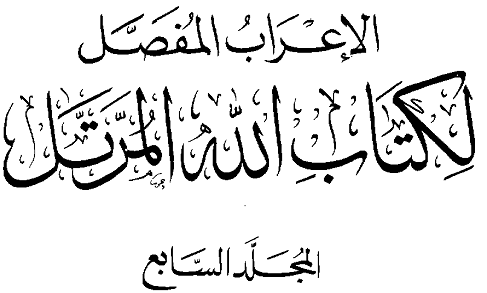 الإعْرَابُ المُفَصَّل
لِكِتَابِ اللهِ المُرَتَّل
المُجَلَّد السَّابع